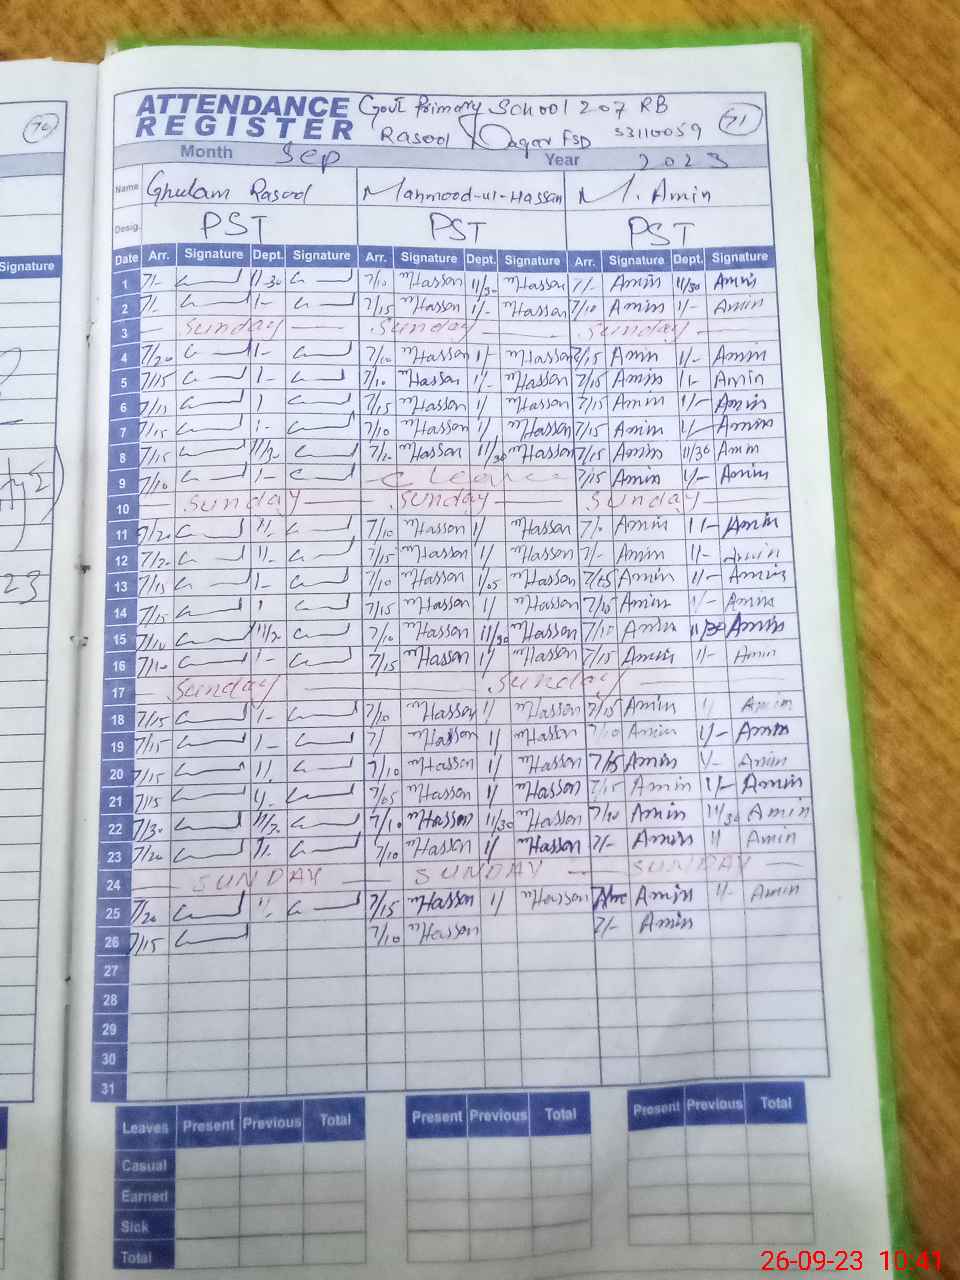 76
Signature
23
ATTENDANCE Govt Primary School 207 RB 71
REGISTER Rasool Nagar FSD 53110059
Month Sep Year 2023
Name Ghulam Rasool Mahmood-ul-Hassan M. Amin
Desig. PST PST PST
Date Arr. Signature Dept. Signature Arr. Signature Dept. Signature Arr. Signature Dept. Signature
1 7/- 11-30 7/10 Hassan 11/30 Hassan 7/- Amin 11/30 Amin
2 7/- 1- 7/15 Hassan 1/- Hassan 7/10 Amin 1/- Amin
3 Sunday Sunday Sunday
4 7/20 1- 7/10 Hassan 1/- Hassan 7/15 Amin 1/- Amin
5 7/15 1- 7/10 Hassan 1/- Hassan 7/15 Amin 1- Amin
6 7/15 1 7/15 Hassan 1/ Hassan 7/15 Amin 1/- Amin
7 7/15 1- 7/10 Hassan 1/ Hassan 7/15 Amin 1/- Amin
8 7/15 Hassan 11/30 Hassan 7/15 Amin 11/30 Amin
9 7/10 1- 7/15 Amin 1/- Amin
10 Sunday Sunday Sunday
11 7/20 7/10 Hassan 1/ Hassan Amin 1- Amin
12 7/20 7/15 Hassan 1/ Hassan 7/- Amin 1/- Amin
13 7/15 1- 7/10 Hassan 1/05 Hassan 7/15 Amin 1/- Amin
14 7/15 1 7/15 Hassan 1/ Hassan 7/15 Amin 1/- Amin
15 7/10 7/10 Hassan 11/30 Hassan 7/10 Amin 11/30 Amin
16 7/10 1- 7/15 Hassan 1/ Hassan 7/15 Amin 1/- Amin
17 Sunday Sunday
18 7/15 1- 7/10 Hassan 1/ Hassan 7/15 Amin 1/ Amin
19 7/15 1- 7/ Hassan 1/ Hassan 7/10 Amin 1/- Amin
20 7/15 7/10 Hassan 1/ Hassan 7/15 Amin 1/- Amin
21 7/15 7/05 Hassan 1/ Hassan 7/15 Amin 1/- Amin
22 7/30 7/10 Hassan 11/30 Hassan 7/10 Amin 11/30 Amin
23 7/20 7/10 Hassan 1/ Hassan 7/- Amin 1/ Amin
24 SUNDAY SUNDAY SUNDAY
25 7/20 7/15 Hassan 1/ Hassan Amin 1/- Amin
26 7/15 7/10 Hassan 7/- Amin
27
28
29
30
31
Leaves Present Previous Total Present Previous Total Present Previous Total
Casual
Earned
Sick
Total
26-09-23 10:41